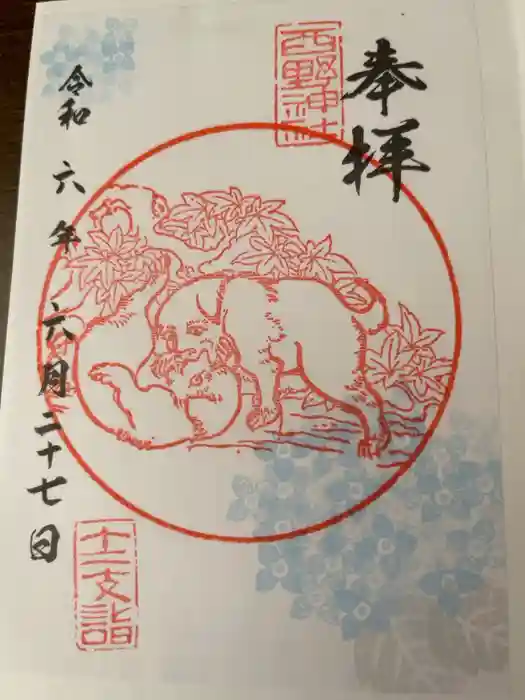 奉拝
西野神社
令和六年六月二十七日
十二支詣